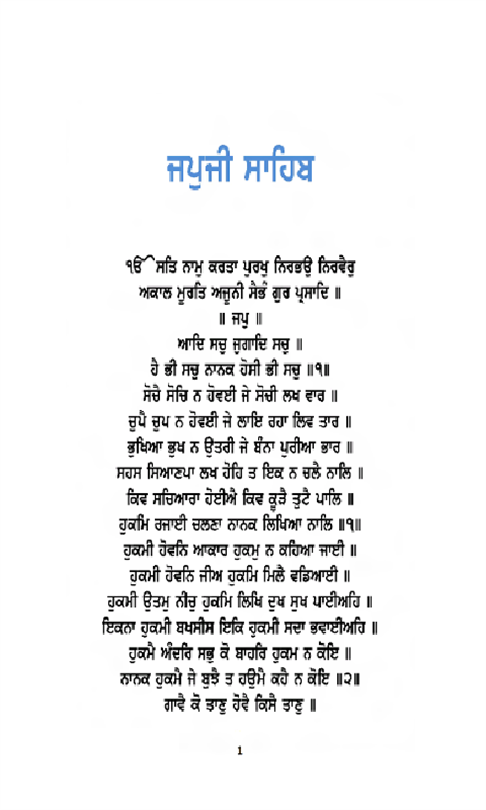 ਜਪੁਜੀ ਸਾਹਿਬ
ੴ ਸਤਿ ਨਾਮੁ ਕਰਤਾ ਪੁਰਖੁ ਨਿਰਭਉ ਨਿਰਵੈਰੁ
ਅਕਾਲ ਮੂਰਤਿ ਅਜੂਨੀ ਸੈਭੰ ਗੁਰ ਪ੍ਰਸਾਦਿ ॥
॥ ਜਪੁ ॥
ਆਦਿ ਸਚੁ ਜੁਗਾਦਿ ਸਚੁ ॥
ਹੈ ਭੀ ਸਚੁ ਨਾਨਕ ਹੋਸੀ ਭੀ ਸਚੁ ॥੧॥
ਸੋਚੈ ਸੋਚਿ ਨ ਹੋਵਈ ਜੇ ਸੋਚੀ ਲਖ ਵਾਰ ॥
ਚੁਪੈ ਚੁਪ ਨ ਹੋਵਈ ਜੇ ਲਾਇ ਰਹਾ ਲਿਵ ਤਾਰ ॥
ਭੁਖਿਆ ਭੁਖ ਨ ਉਤਰੀ ਜੇ ਬੰਨਾ ਪੁਰੀਆ ਭਾਰ ॥
ਸਹਸ ਸਿਆਣਪਾ ਲਖ ਹੋਹਿ ਤ ਇਕ ਨ ਚਲੈ ਨਾਲਿ ॥
ਕਿਵ ਸਚਿਆਰਾ ਹੋਈਐ ਕਿਵ ਕੂੜੈ ਤੁਟੈ ਪਾਲਿ ॥
ਹੁਕਮਿ ਰਜਾਈ ਚਲਣਾ ਨਾਨਕ ਲਿਖਿਆ ਨਾਲਿ ॥੧॥
ਹੁਕਮੀ ਹੋਵਨਿ ਆਕਾਰ ਹੁਕਮੁ ਨ ਕਹਿਆ ਜਾਈ ॥
ਹੁਕਮੀ ਹੋਵਨਿ ਜੀਅ ਹੁਕਮਿ ਮਿਲੈ ਵਡਿਆਈ ॥
ਹੁਕਮੀ ਉਤਮੁ ਨੀਚੁ ਹੁਕਮਿ ਲਿਖਿ ਦੁਖ ਸੁਖ ਪਾਈਅਹਿ ॥
ਇਕਨਾ ਹੁਕਮੀ ਬਖਸੀਸ ਇਕਿ ਹੁਕਮੀ ਸਦਾ ਭਵਾਈਅਹਿ ॥
ਹੁਕਮੈ ਅੰਦਰਿ ਸਭੁ ਕੋ ਬਾਹਰਿ ਹੁਕਮ ਨ ਕੋਇ ॥
ਨਾਨਕ ਹੁਕਮੈ ਜੇ ਬੁਝੈ ਤ ਹਉਮੈ ਕਹੈ ਨ ਕੋਇ ॥੨॥
ਗਾਵੈ ਕੋ ਤਾਣੁ ਹੋਵੈ ਕਿਸੈ ਤਾਣੁ ॥
1